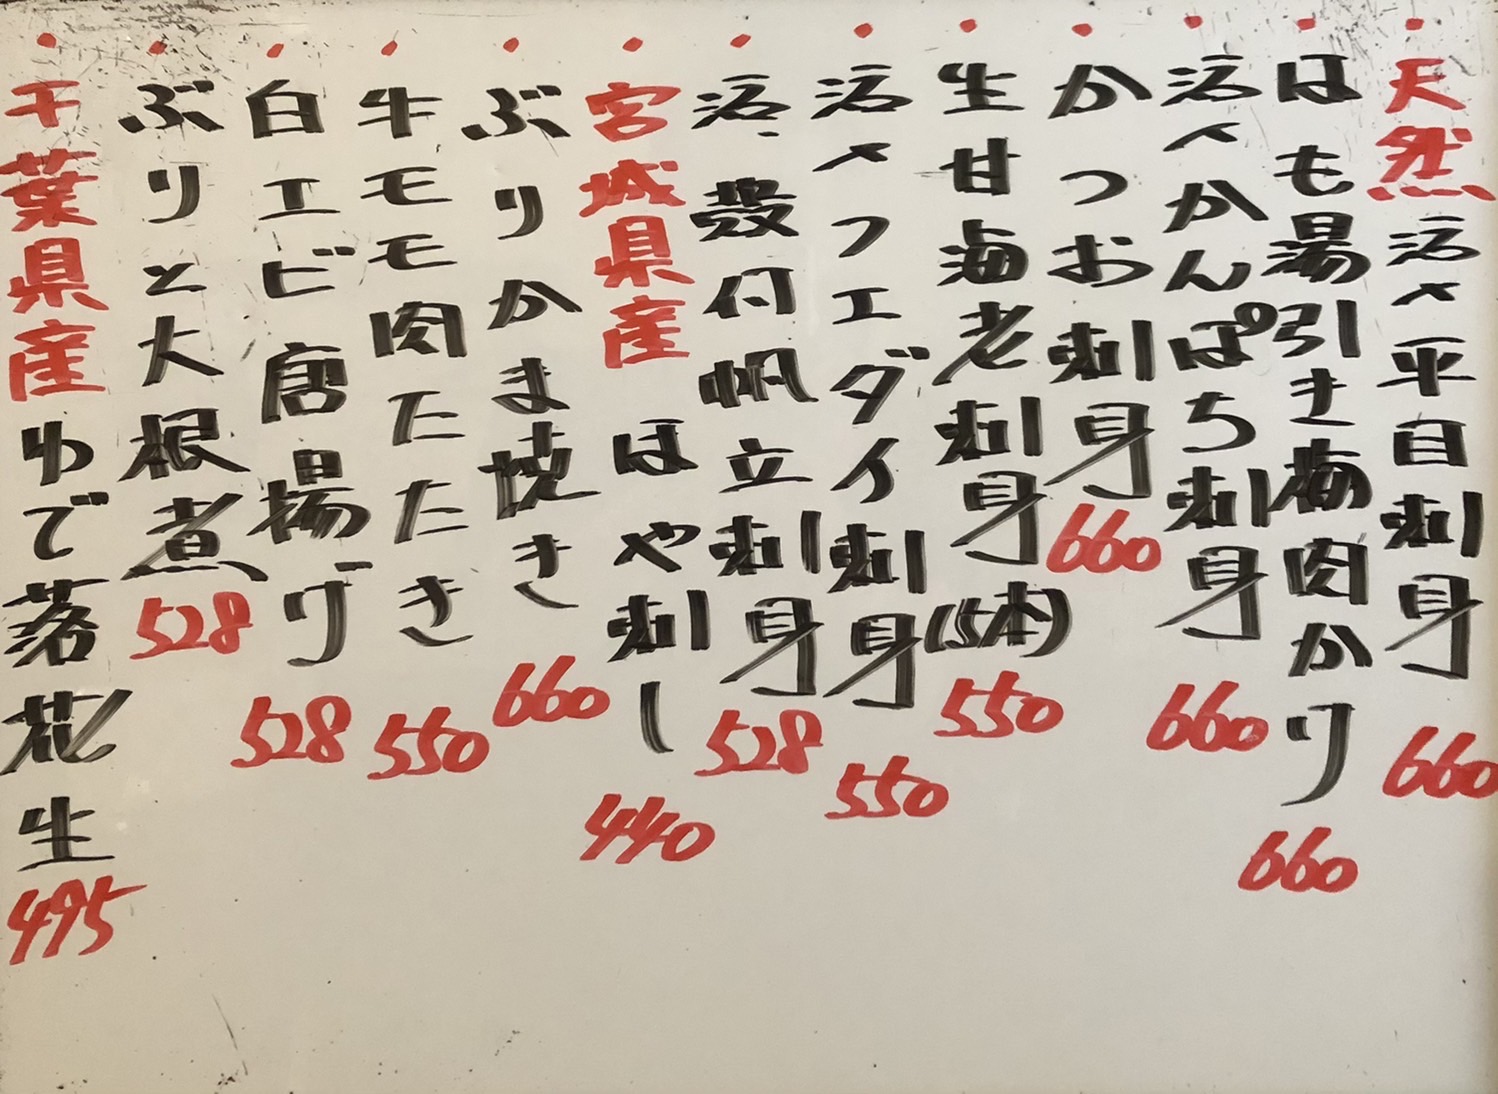 ・天然活〆平目刺身 660
・はも湯引き梅肉かり 660
・活〆かんぱち刺身 660
・かつお刺身 660
・生甘海老刺身(5本) 550
・活〆フエダイ刺身 550
・活殻付帆立刺身 528
・宮城県産ほや刺し 440
・ぶりかま焼き 660
・牛モモ肉たたき 550
・白エビ唐揚げ 528
・ぶりと大根煮 528
・千葉県産ゆで落花生 495